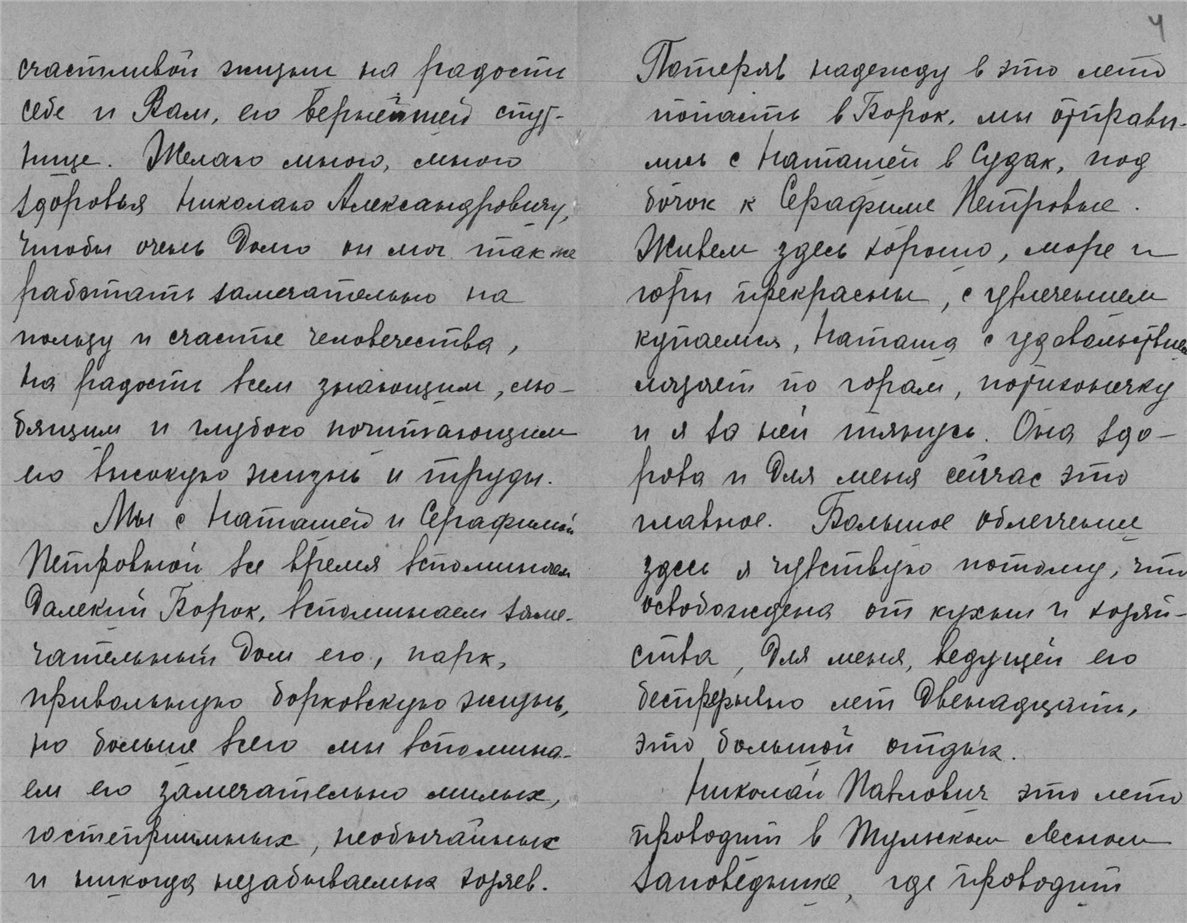 счастливой жизни на радость
себе и Вам, его вернейшей спут-
нице. Желаю много, много
здоровья Николаю Александровичу,
чтобы очень долго он мог так же
работать замечательно на
пользу и счастье человечества,
на радость всем знающим, лю-
бящим и глубоко почитающим
его высокую жизнь и труды.
Мы с Наташей и Серафимой
Петровной все время вспоминаем
далекий Борок, вспоминаем заме-
чательный дом его, парк,
привольную борковскую жизнь,
но больше всего мы вспомина-
ем его замечательно милых,
гостеприимных, необычайных
и никогда незабываемых хозяев.
4
Потеряв надежду в это лето
попасть в Борок, мы отправи-
лись с Наташей в Судак, под
бочок к Серафиме Петровне.
Живем здесь хорошо, море и
горы прекрасны, с увлечением
купаемся, Наташа с удовольствием
лазяет по горам, потихонечку
и я за ней тянусь. Она здо-
рова и для меня сейчас это
главное. Большое облегчение
здесь я чувствую потому, что
освобождена от кухни и хозяй-
ства, для меня, ведущей его
беспрерывно лет двенадцать,
это большой отдых.
Николай Павлович это лето
проводит в Тульском лесном
заповеднике, где проводит